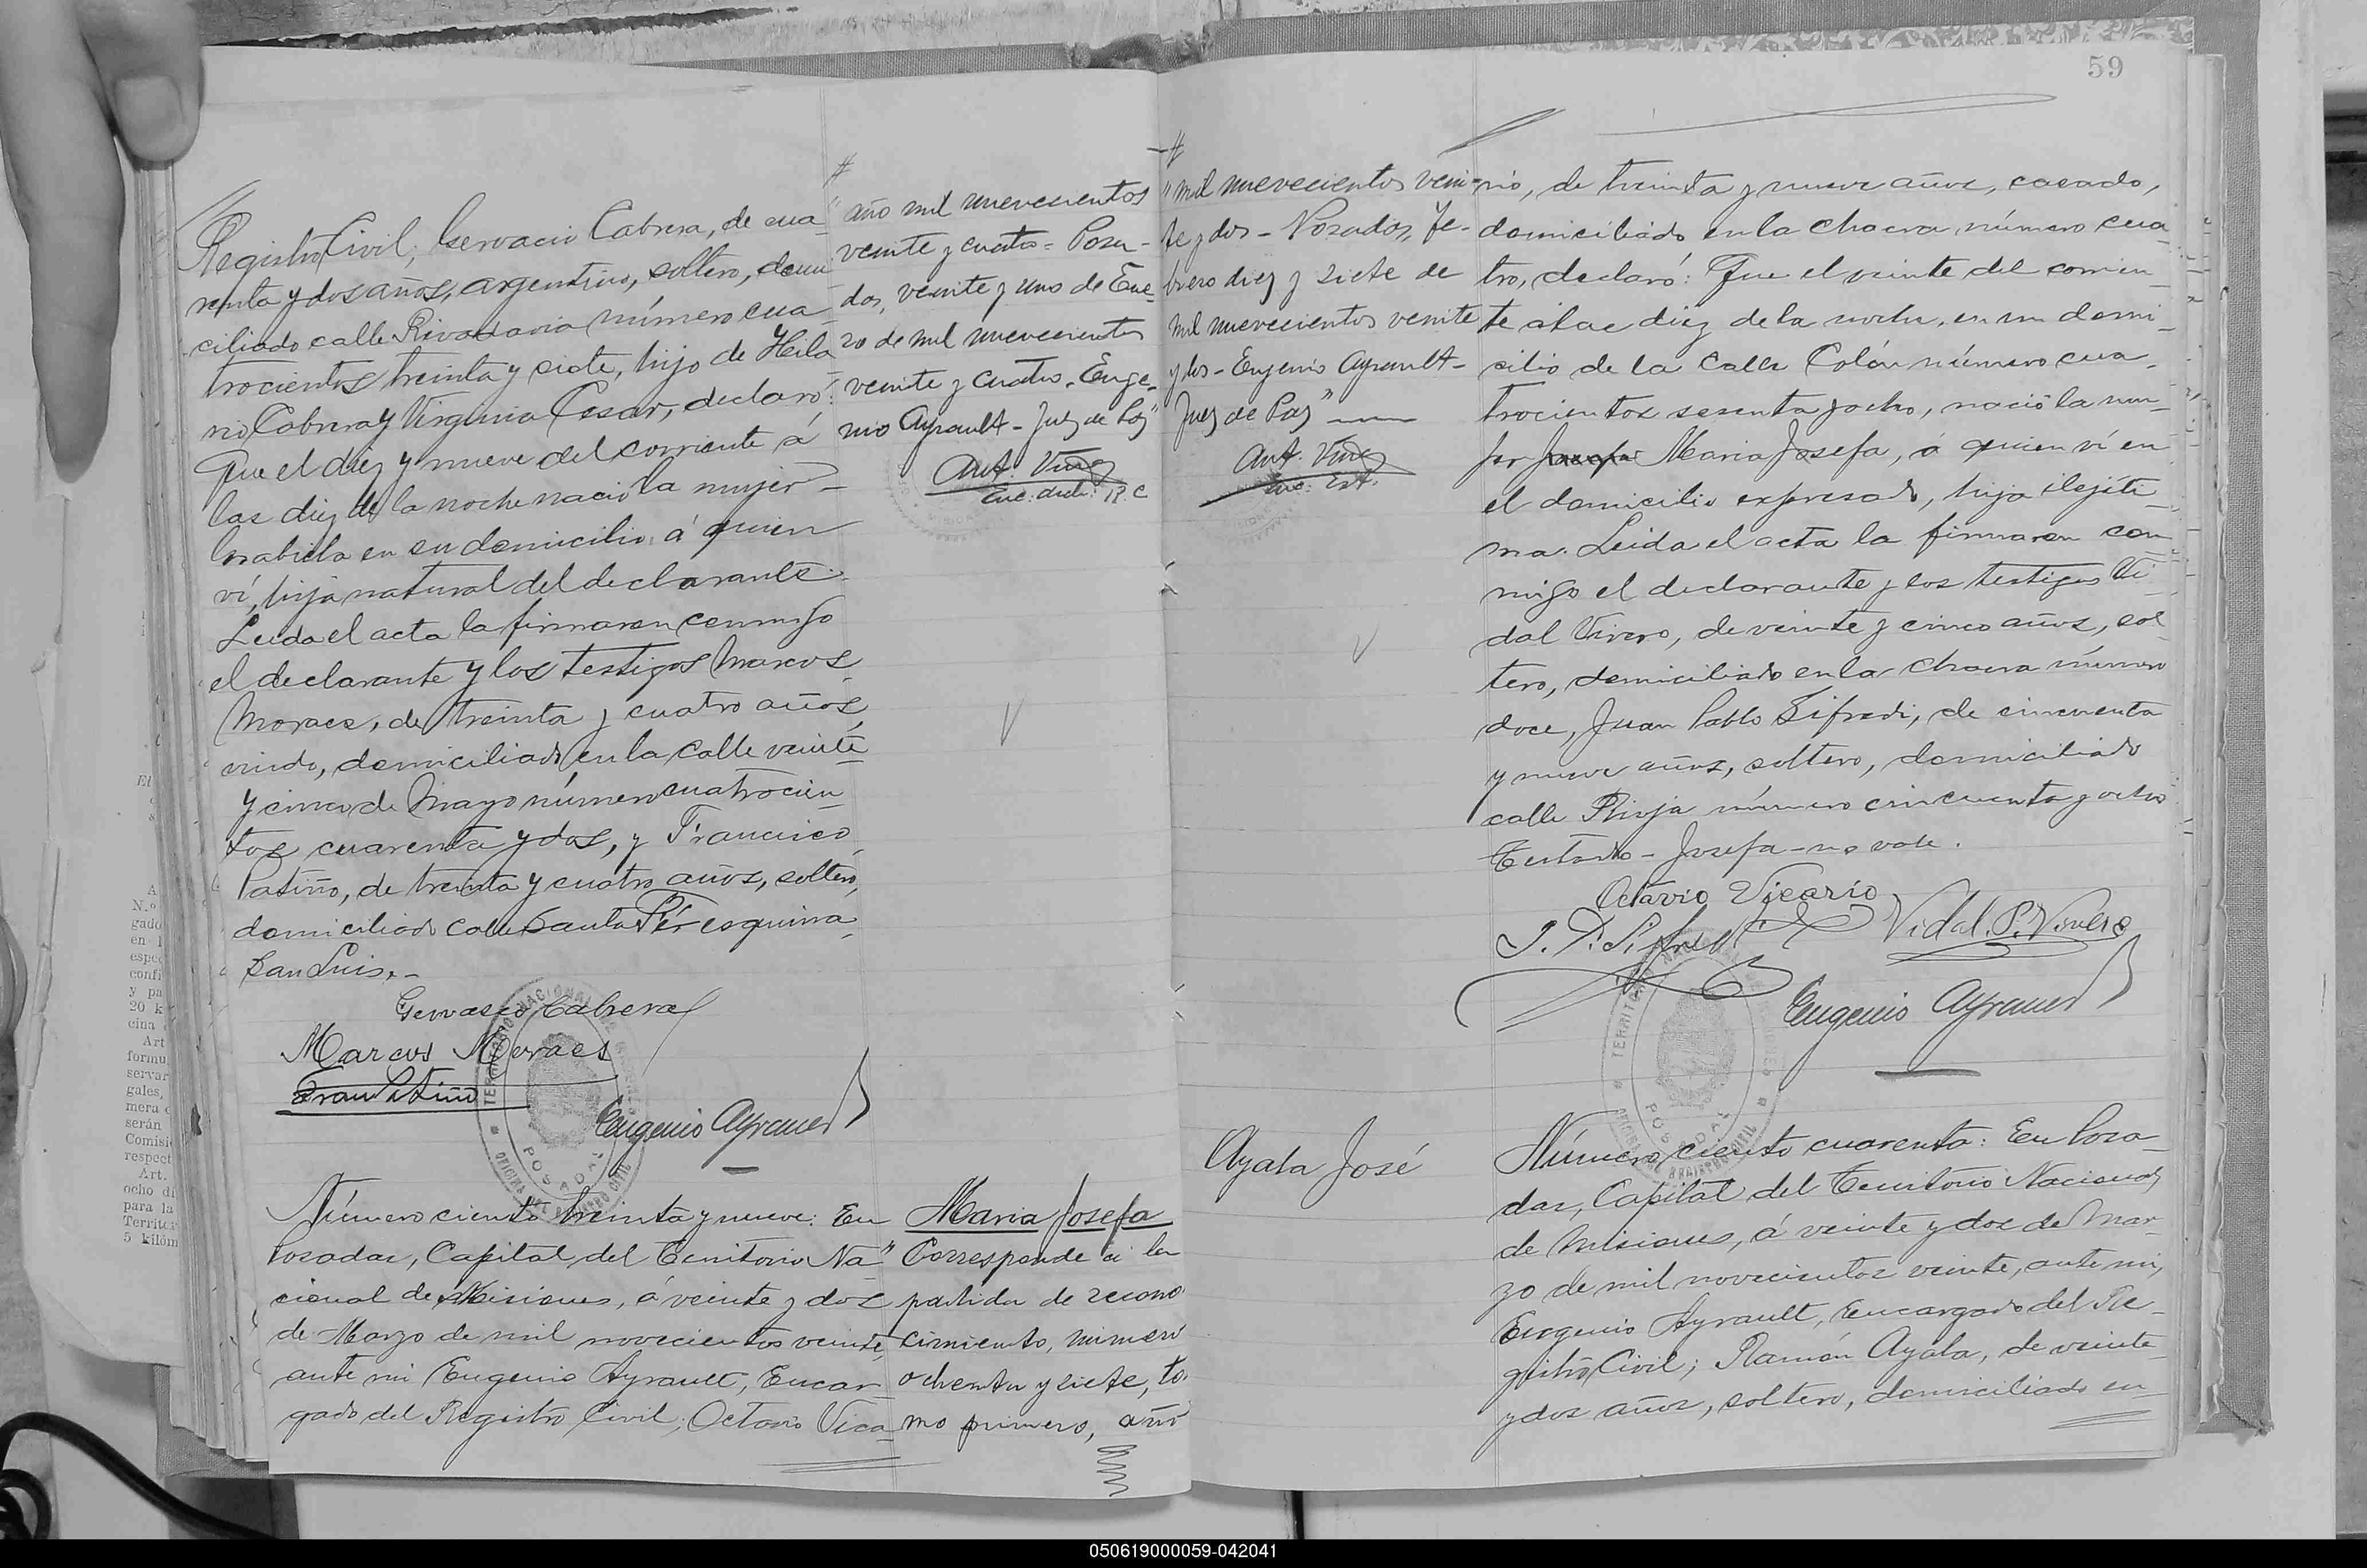 Registro Civil; Gervacio Cabrera, de cua
renta y dos años, argentino, soltero, domi
ciliado calle Rivadavia número cua
trocientos treinta y siete, hijo de Hila
rio Cabrera y Virginia Cesar, declaró:
Que el diez y nueve del corriente á
las diez de la noche nació la mujer
en su domicilio á quien
ví, hija natural del declarante.
Leida el acta la firmaron conmigo
el declarante y los testigos Marcos
Moraes, de treinta y cuatro años,
viudo, domiciliado en la calle veinte
y cinco de Mayo número cuatrocien
tos cuarenta y dos, y Francisco
Patiño, de treinta y cuatro años, soltero,
domiciliado calle Santa Fé esquina
San Luis.-
Gervasio Cabrera
Marcos Moraes
Fran Patiño
Eugenio Ayrault
TERRITORIO NACIONAL DE MISIONES
POSADAS
OFICINA DE REGISTRO CIVIL
Número ciento treinta y nueve: En
Posadas, Capital del Territorio Na
cional de Misiones, á veinte y dos
de Marzo de mil novecientos veinte,
ante mi Eugenio Ayrault, Encar
gado del Registro Civil; Octavio Vica
#
"año mil nuevecientos
veinte y cuatro = Posa-
das, veinte y uno de Ene-
ro de mil nuevecientos
veinte y cuatro - Euge-
nio Ayrault - Juez de Paz"
Enc. R. C
Maria Josefa
"Corresponde á la
partida de recono
cimiento, número
ochenta y siete, to
mo primero, año
#
"mil nuevecientos vein-
te y dos - Posadas, Fe-
brero diez y siete de
mil nuevecientos veinte
y dos - Eugenio Ayrault -
Juez de Paz"
59
rio, de treinta y nueve años, casado,
domiciliado en la chacra número cua
tro, declaró: Que el veinte del corrien
te á las diez de la noche, en un domi
cilio de la calle Colón número cua
trocientos sesenta y ocho, nació la mu
jer Josefa Maria Josefa, á quien ví en
el domicilio expresado, hija ilegíti
ma. Leida el acta la firmaron con
migo el declarante y los testigos Vi
dal Vivero, de veinte y cinco años, sol
tero, domiciliado en la chacra número
doce, Juan Pablo Sifredi, de cincuenta
y nueve años, soltero, domiciliado
calle Rioja número cincuenta y ocho
Testado - Josefa - no vale.
Octavio Vicario
J. P. Sifredi
Vidal. P. Vivero
Eugenio Ayrault
TERRITORIO NACIONAL DE MISIONES
POSADAS
OFICINA DE REGISTRO CIVIL
Ayala José
Número ciento cuarenta: En Posa
das, Capital del Territorio Nacional
de Misiones, á veinte y dos de Mar
zo de mil novecientos veinte, ante mi,
Eugenio Ayrault, Encargado del Re
gistro Civil; Ramón Ayala, de veinte
y dos años, soltero, domiciliado en
050619000059-042041